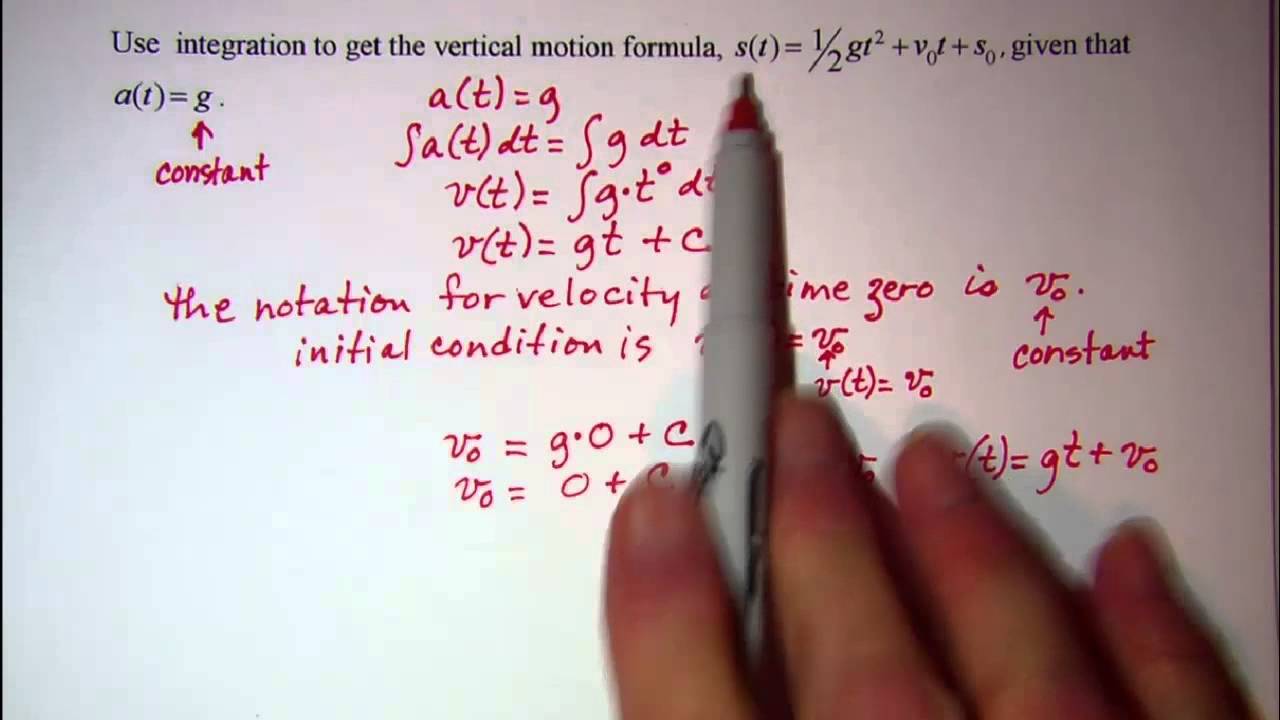 Use integration to get the vertical motion formula, s(t) = ½gt² + v₀t + s₀, given that
a(t) = g.
↑
constant
a(t) = g
∫a(t) dt = ∫g dt
v(t) = ∫g·t⁰
v(t) = gt + C
the notation for velocity zero is v₀.
↑
constant
initial condition is = v₀
↑
v(t) = v₀
v₀ = g·0 + C
v₀ = 0 + C
(t) = gt + v₀